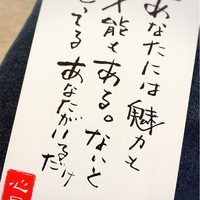 あなたには魅力と
才能もある。ないと
ってる あなたがいるだけ
だ
心